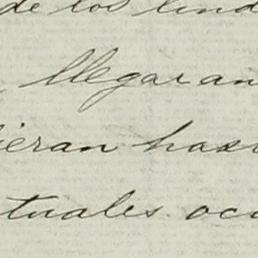 de los lind
llegaran
ieran hast
tuales ocu